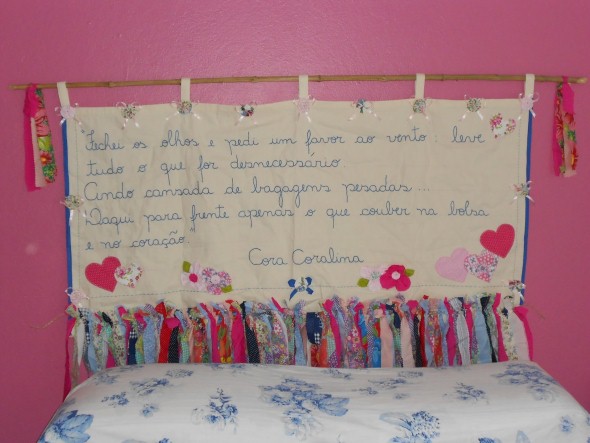 "Fechei os olhos e pedi um favor ao vento: leve
tudo o que for desnecessário.
Cindo cansada de bagagens pesadas...
Daqui para frente apenas o que couber na bolsa
e no coração"
Cora Coralina